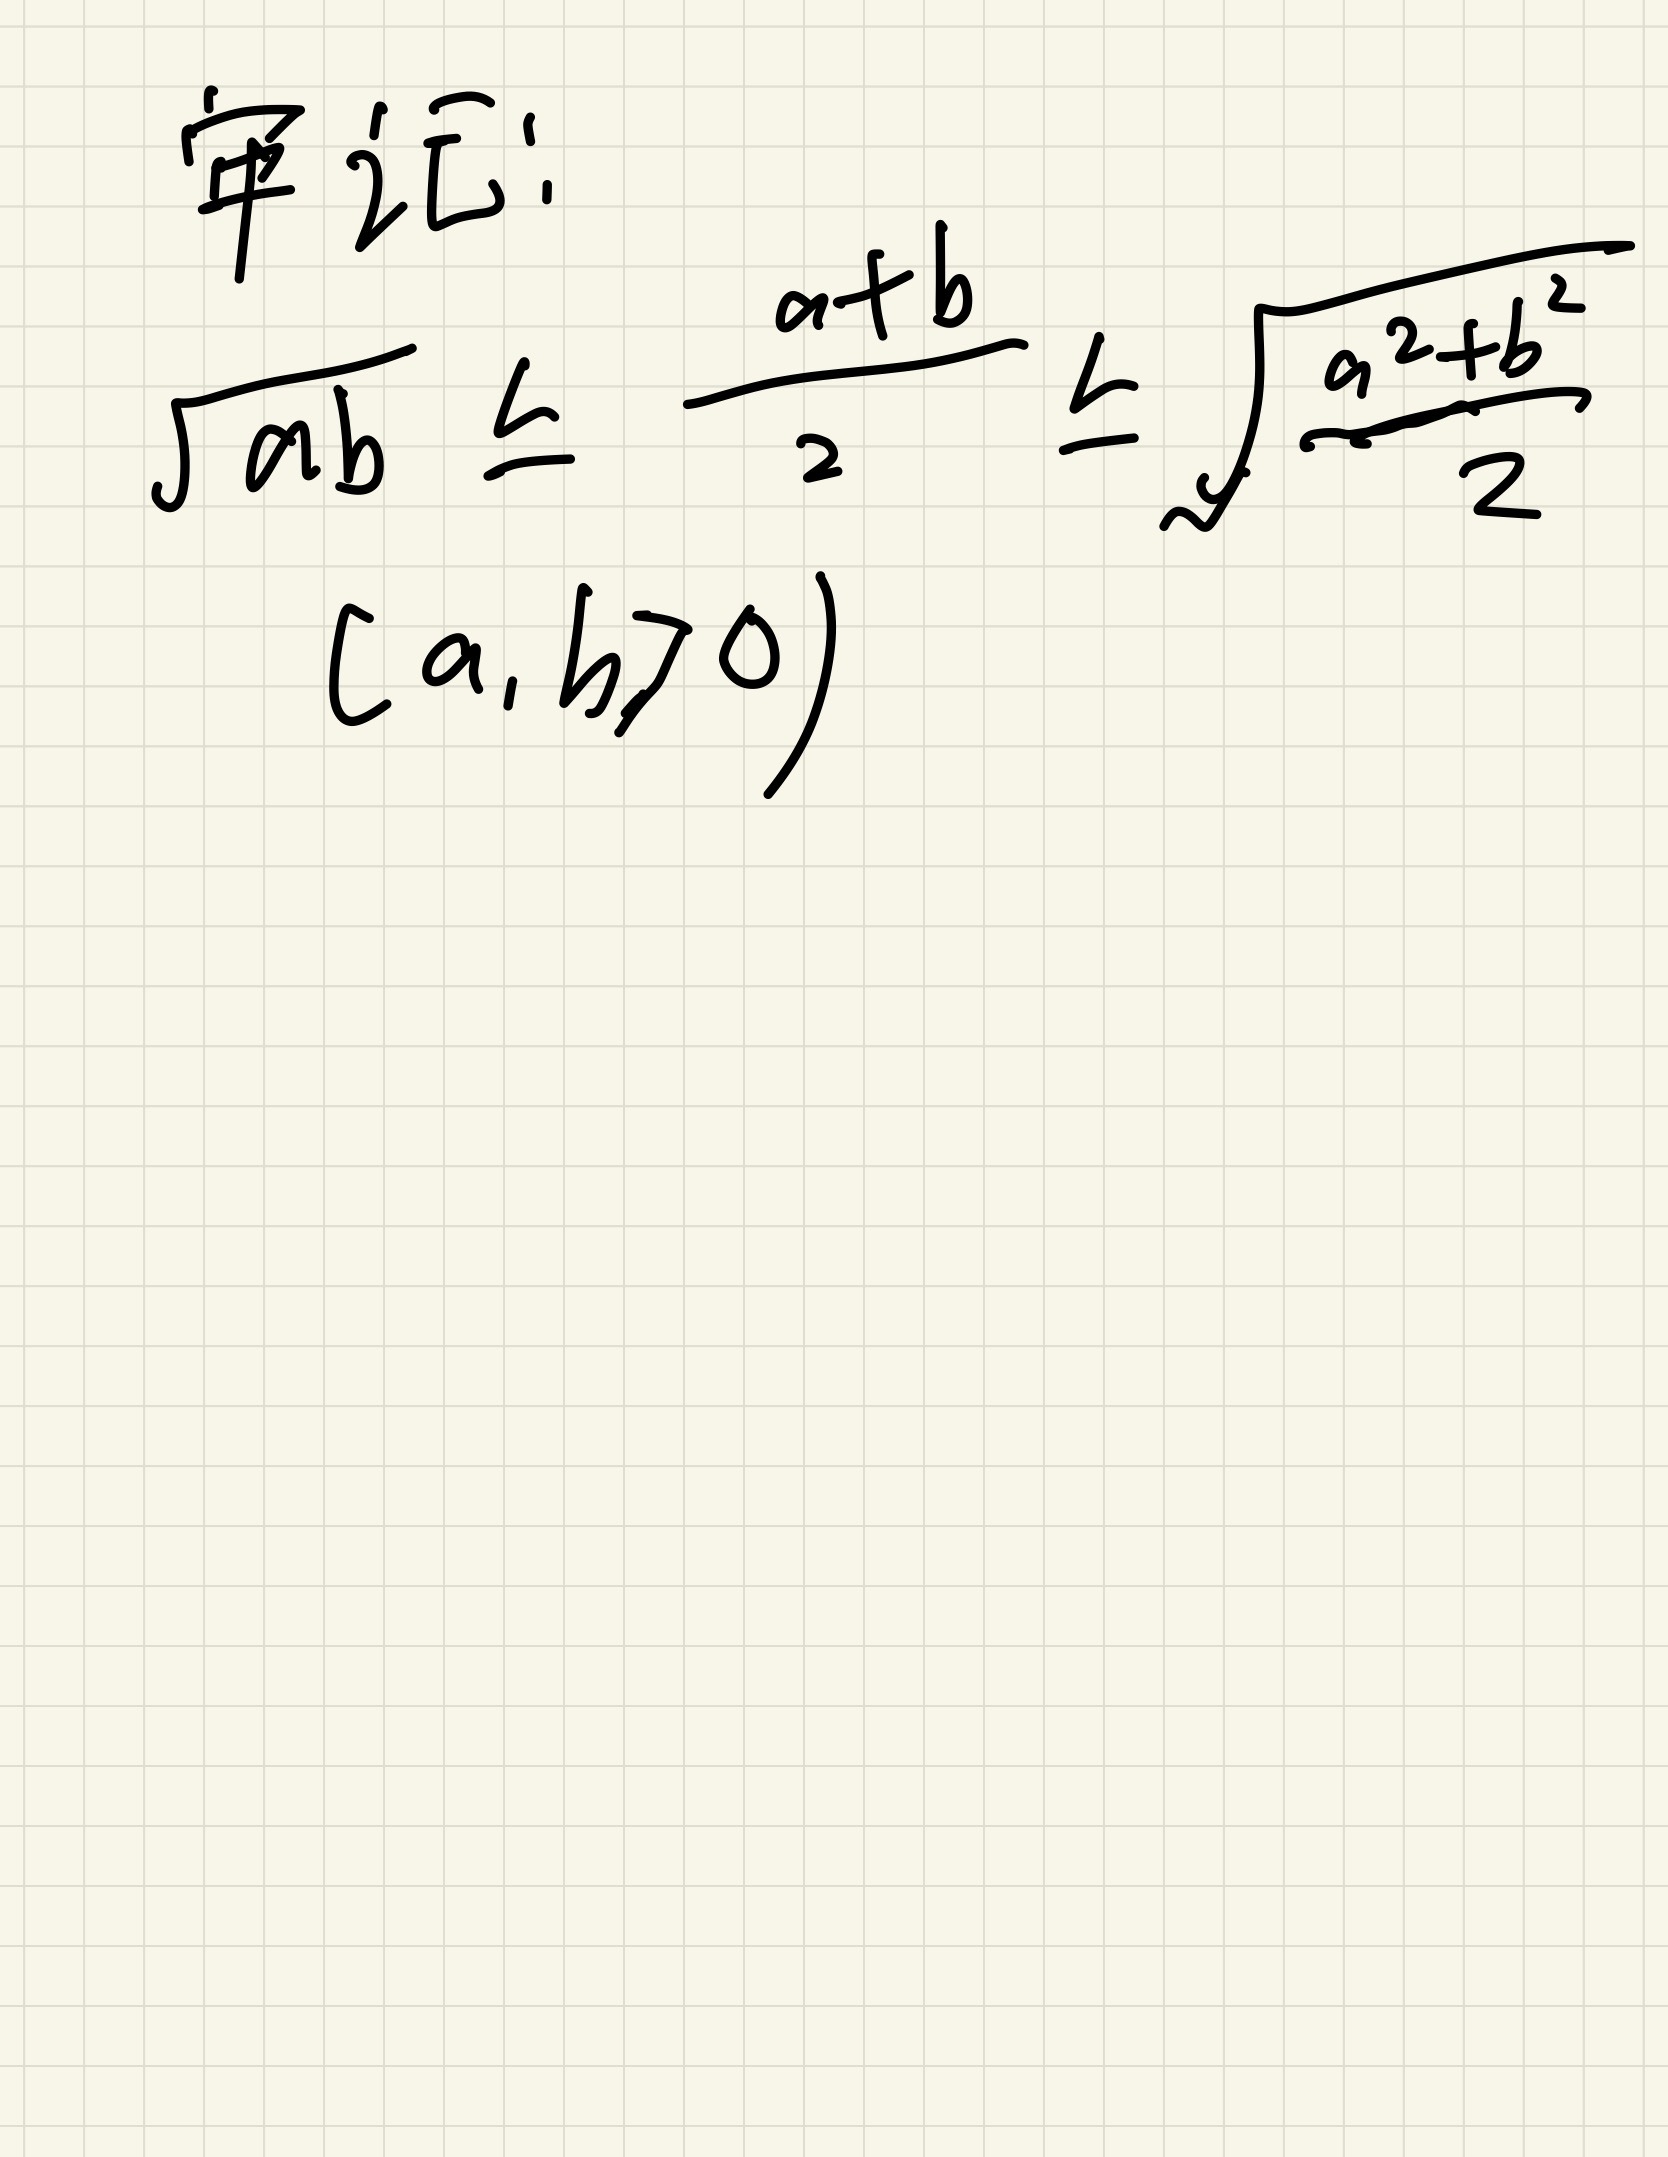 牢记:
√ab ≤ (a+b)/2 ≤ √((a²+b²)/2)
(a,b>0)